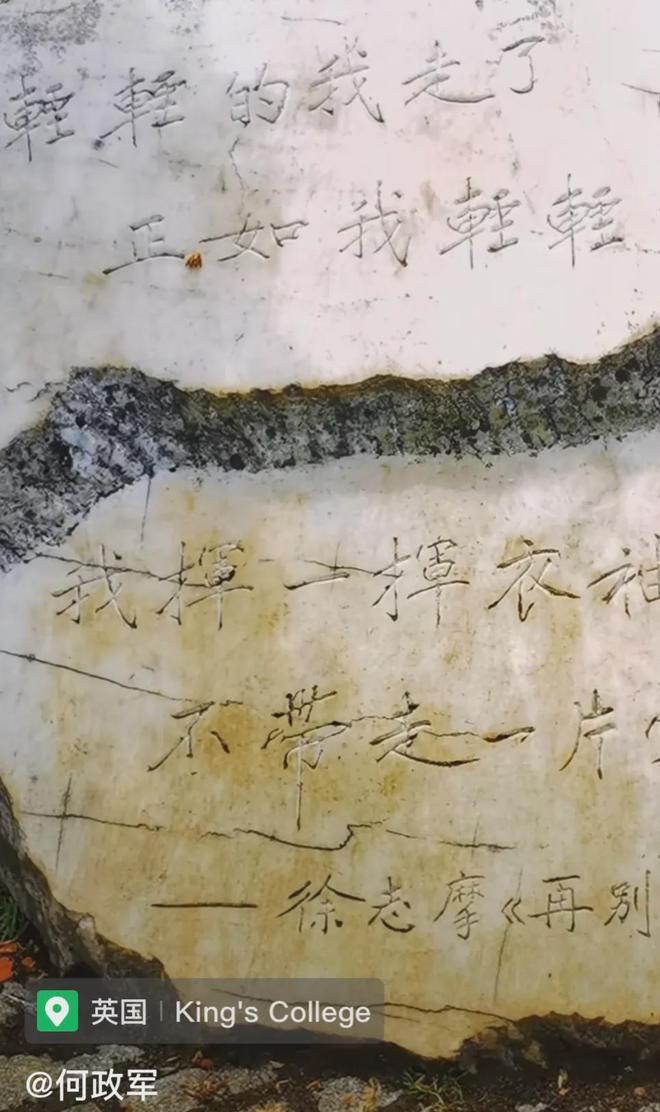 輕輕的我走了
正如我輕輕
我揮一揮衣袖
不帶走一片
——徐志摩《再别
英国 | King's College
@何政军